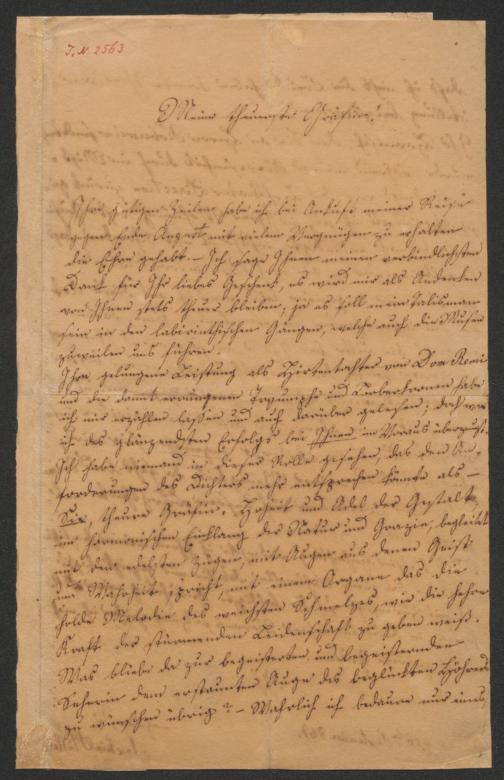 I. N. 2563
Meine theuerste Gräfin!
Ihre gütigen Zeilen habe ich bei Ankunft meiner Reise
gegen Ende August mit vielem Vergnügen zu erhalten
die Ehre gehabt. – Ich sage Ihnen meinen verbindlichsten
Dank für Ihr liebes Geschenk, es wird mir als Andenken
von Ihnen stets theuer bleiben, ja es soll mein Talisman
sein in den labirinthischen Gängen, welche auch die Musen
zuweilen uns führen.
Ihre gelungene Leistung als Hirtentochter von Dom Remi
und die damit errungenen Tryumphe und Lorberkronen habe
ich mir erzählen lassen und auch darüber gelesen; doch war
ich des glänzendsten Erfolgs bei Ihnen im Voraus überzeugt.
Ich habe niemand in dieser Rolle gesehen, das den An-
forderungen des Dichters mehr entsprechen könnte als –
Sie, theure Gräfin. Hoheit und Adel der Gestalt
im harmonischen Einklang der Natur und Grazie, begleitet
mit den edelsten Zügen, mit Augen aus denen Geist
und Wahrheit spricht, mit einem Organe das die
holde Melodie des weichsten Schmelzes, wie die hohe
Kraft der stürmenden Leidenschaft zu geben weiß.
Was bliebe da zur begeisterten und begeisternden
Seherin dem erstaunten Auge des beglückten Hörers
zu wünschen übrig? – Wahrlich ich bedaure nur eins,